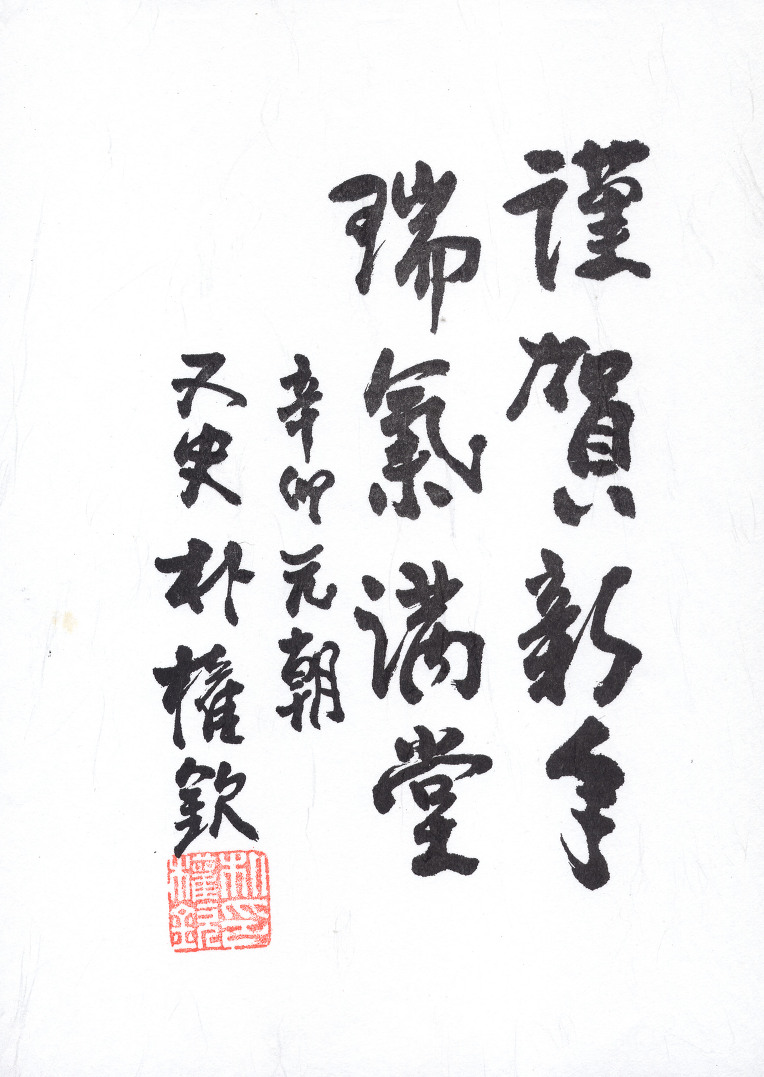 謹賀新年
瑞氣滿堂
辛卯元朝
又史朴權欽
朴印權欽